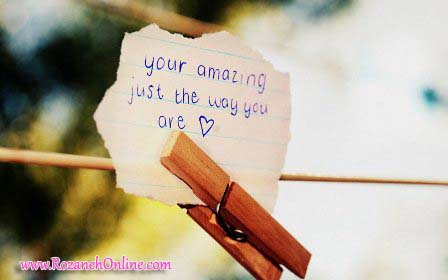 your amazing
just the way you
are ♡
www.RozanehOnline.com